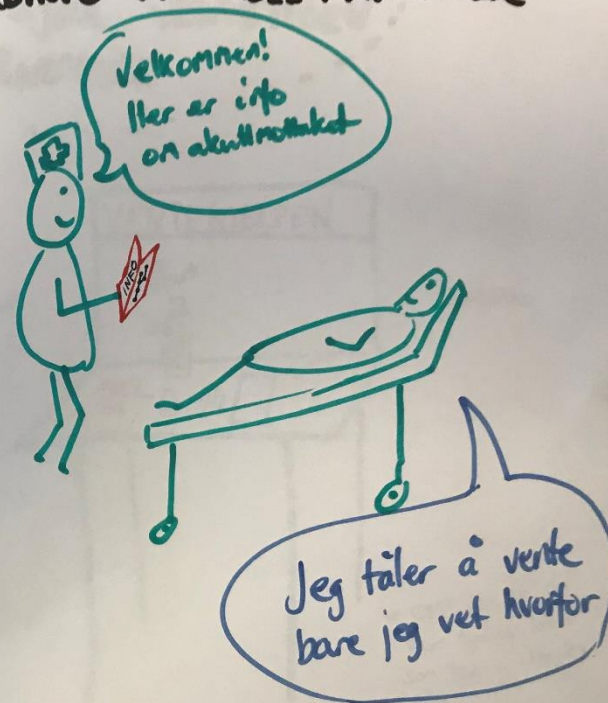 Velkommen!
Her er info
om akuttmottaket
INFO
Jeg tåler å vente
bare jeg vet hvorfor